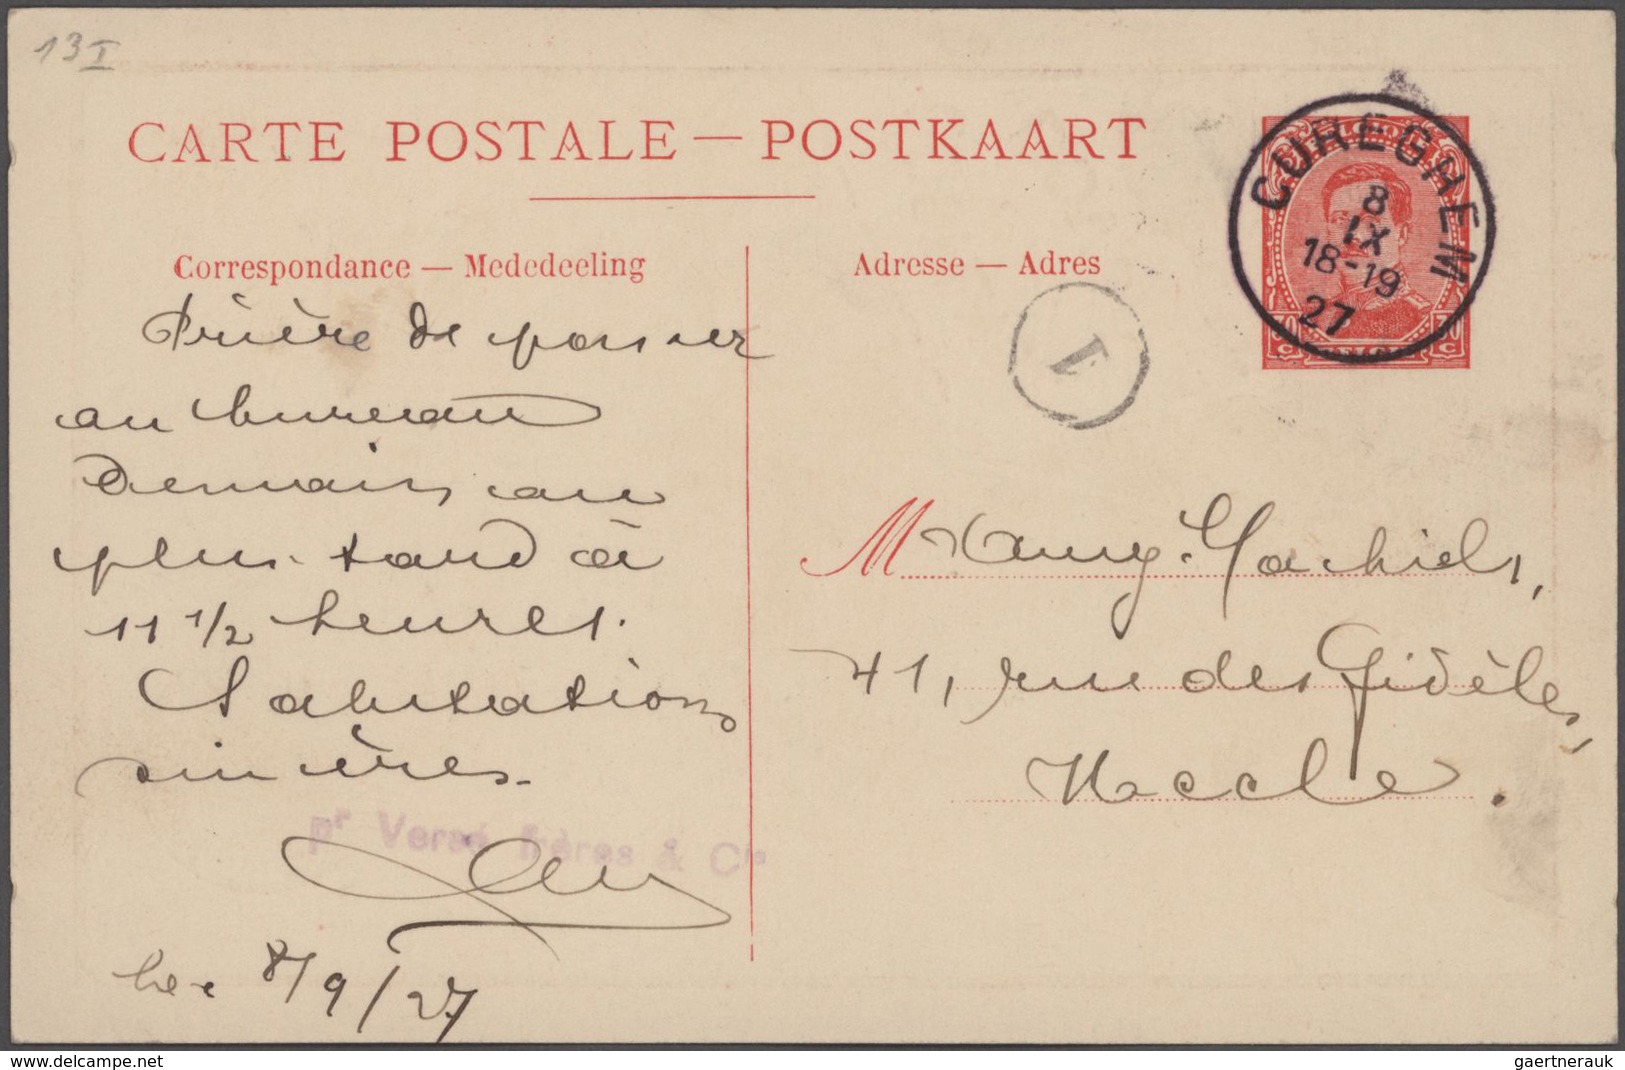 13 I
CARTE POSTALE — POSTKAART
CUREGHEM
8
IX
18-19
27
30 c
30 c
Correspondance — Mededeeling
Adresse — Adres
1
Prière de passer
au bureau
demain au
plus tard à
11 1/2 heures.
Salutations
sincères.
pr Versé frères & Cie
le 8/9/27
M Vanny. Machiels,
41, rue des Fidèles,
Uccle.
www.delcampe.net
gaertnerauk